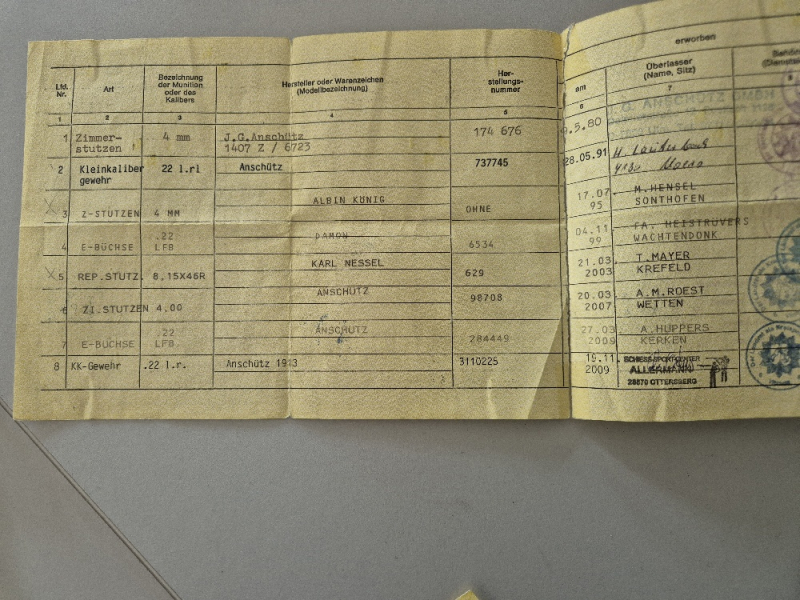 erworben
Lfd. Nr.
Art
Bezeichnung der Munition oder des Kalibers
Hersteller oder Warenzeichen (Modellbezeichnung)
Her-stellungs-nummer
am
Überlasser (Name, Sitz)
1 2 3 4 5 6 7 8
1 Zimmer- 4 mm J.G.Anschütz 174 676 9.5.80 J.G. ANSCHÜTZ GMBH
stutzen 1407 Z / 6723
2 Kleinkaliber 22 l.rl Anschütz 737745 28.05.91
gewehr
3 Z-STUTZEN 4 MM ALBIN KÖNIG OHNE 17.07. M.HENSEL
95 SONTHOFEN
4 E-BÜCHSE .22 DAMON 6534 04.11. FA. HEISTRÜVERS
LFB 99 WACHTENDONK
5 REP.STUTZ. 8,15X46R KARL NESSEL 629 21.03. T.MAYER
2003 KREFELD
6 ZI.STUTZEN 4.00 ANSCHÜTZ 98708 20.03. A.M.ROEST
2007 WETTEN
7 E-BÜCHSE .22 ANSCHÜTZ 284449 27.03. A.HÜPPERS
LFB 2009 KERKEN
8 KK-Gewehr .22 l.r. Anschütz 1913 3110225 19.11. SCHIESS-SPORT-CENTER
2009 ALLERMANN
28870 OTTERSBERG